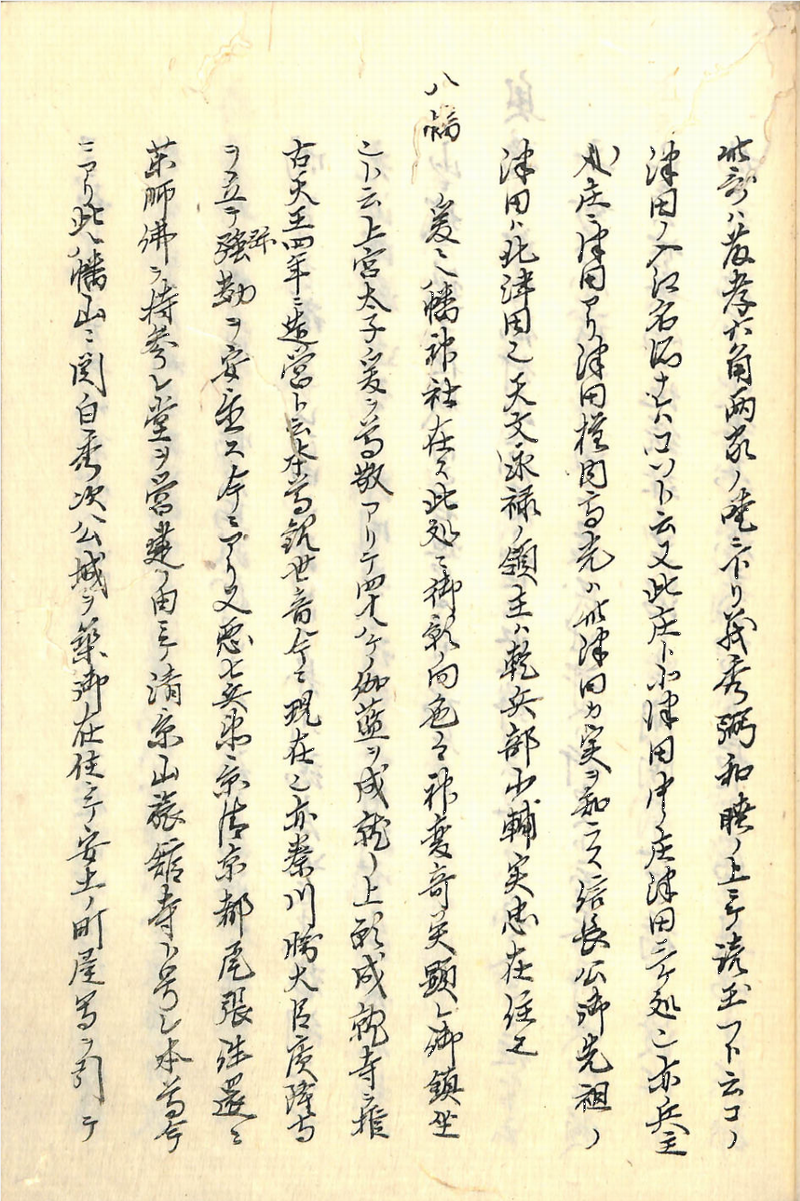 此討ハ義孝六角両家ノ噯ニ下リ義秀弼和睦ノ上ニテ読玉フト云コノ
津田ノ入江名所ナレハコソト云又此庄ト小津田中ノ庄津田三ケ処也亦兵主
ノ庄ニ津田アリ津田権内高光ハ此津田カ実ヲ知ラス信長公御先祖ノ
津田ハ北津田也天文永禄ノ領主ハ乾兵部少輔実忠在住也
八幡 爰ニ八幡神社在ス此処ニ御影向色々神変奇異顕シ御鎮坐
シハ云上宮太子爰ヲ尊敬アリテ四十八ケノ伽藍ヲ成就ノ上願成就寺ヲ推
古天王四年ニ造営ト云本尊観世音今ニ現在也亦秦川勝大臣広隆寺
ヲ立テ弥勒ヲ安置ス今ニアリ又悪七兵衛景清京都尾張往還ニ
薬師佛ヲ持参シ堂ヲ営建ノ由ニテ清京山旅館寺ト号シ本尊今
ニアリ此八幡山ニ関白秀次公城ヲ築御在住ニテ安土ノ町屋等ヲ引テ